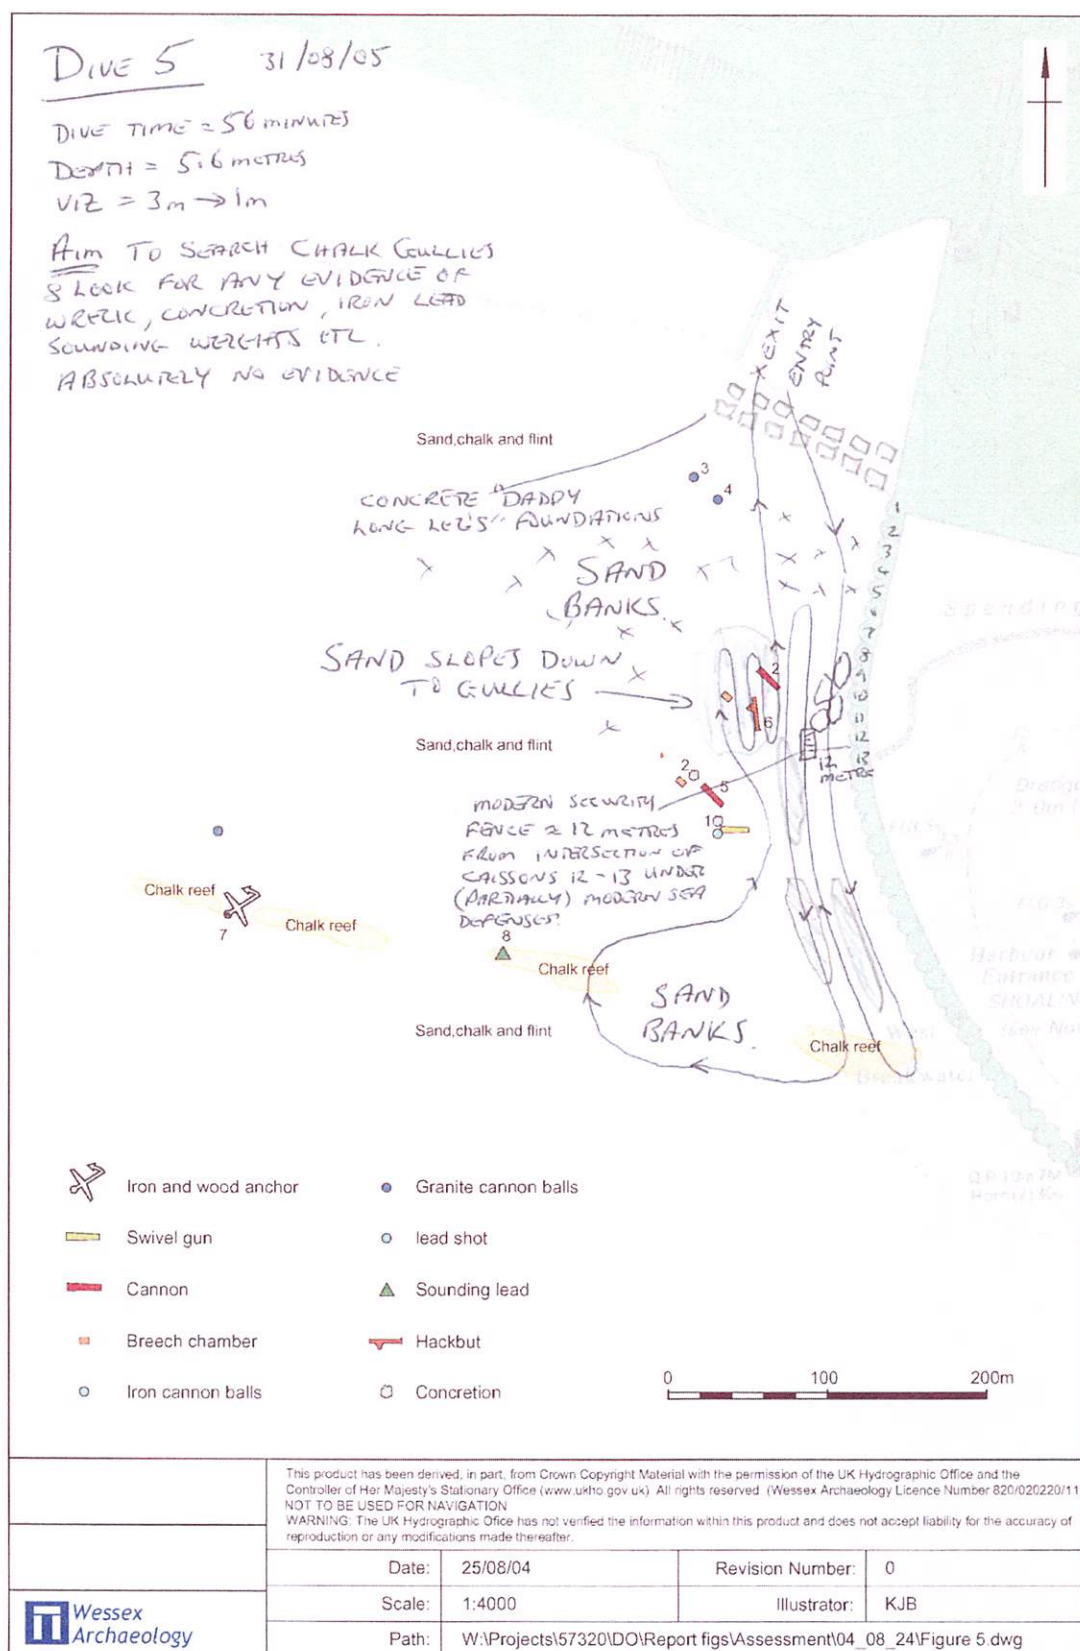 DIVE 5 31/08/05
DIVE TIME = 56 MINUTES
DEPTH = 5.6 METRES
VIZ = 3m → 1m
AIM TO SEARCH CHALK GULLIES
& LOOK FOR ANY EVIDENCE OF
WRECK, CONCRETION, IRON LEAD
SOUNDING WEIGHTS ETC.
ABSOLUTELY NO EVIDENCE
EXIT
ENTRY
POINT
Sand,chalk and flint
3
4
CONCRETE "DADDY
LONG LEGS" FOUNDATIONS
1
2
3
4
5
6
7
8
9
10
11
12
13
SAND
BANKS.
Spending
SAND SLOPES DOWN
TO GULLIES
2
6
Sand,chalk and flint
12
METRE
2
5
1
MODERN SECURITY
FENCE ≈ 12 METRES
FROM INTERSECTION OF
CAISSONS 12-13 UNDER
(PARTIALLY) MODERN SEA
DEFENSES.
Chalk reef
7
Chalk reef
8
Chalk reef
Harbour
Entrance
SAND
BANKS.
Sand,chalk and flint
West
Chalk reef
Breakwater
Iron and wood anchor
Granite cannon balls
Swivel gun
lead shot
Cannon
Sounding lead
Breech chamber
Hackbut
Iron cannon balls
Concretion
0 100 200m
This product has been derived, in part, from Crown Copyright Material with the permission of the UK Hydrographic Office and the
Controller of Her Majesty's Stationary Office (www.ukho.gov.uk) All rights reserved (Wessex Archaeology Licence Number 820/020220/11
NOT TO BE USED FOR NAVIGATION
WARNING: The UK Hydrographic Ofice has not verified the information within this product and does not accept liability for the accuracy of
reproduction or any modifications made thereafter.
Date: 25/08/04 Revision Number: 0
Scale: 1:4000 Illustrator: KJB
Path: W:\Projects\57320\DO\Report figs\Assessment\04_08_24\Figure 5.dwg
Wessex
Archaeology